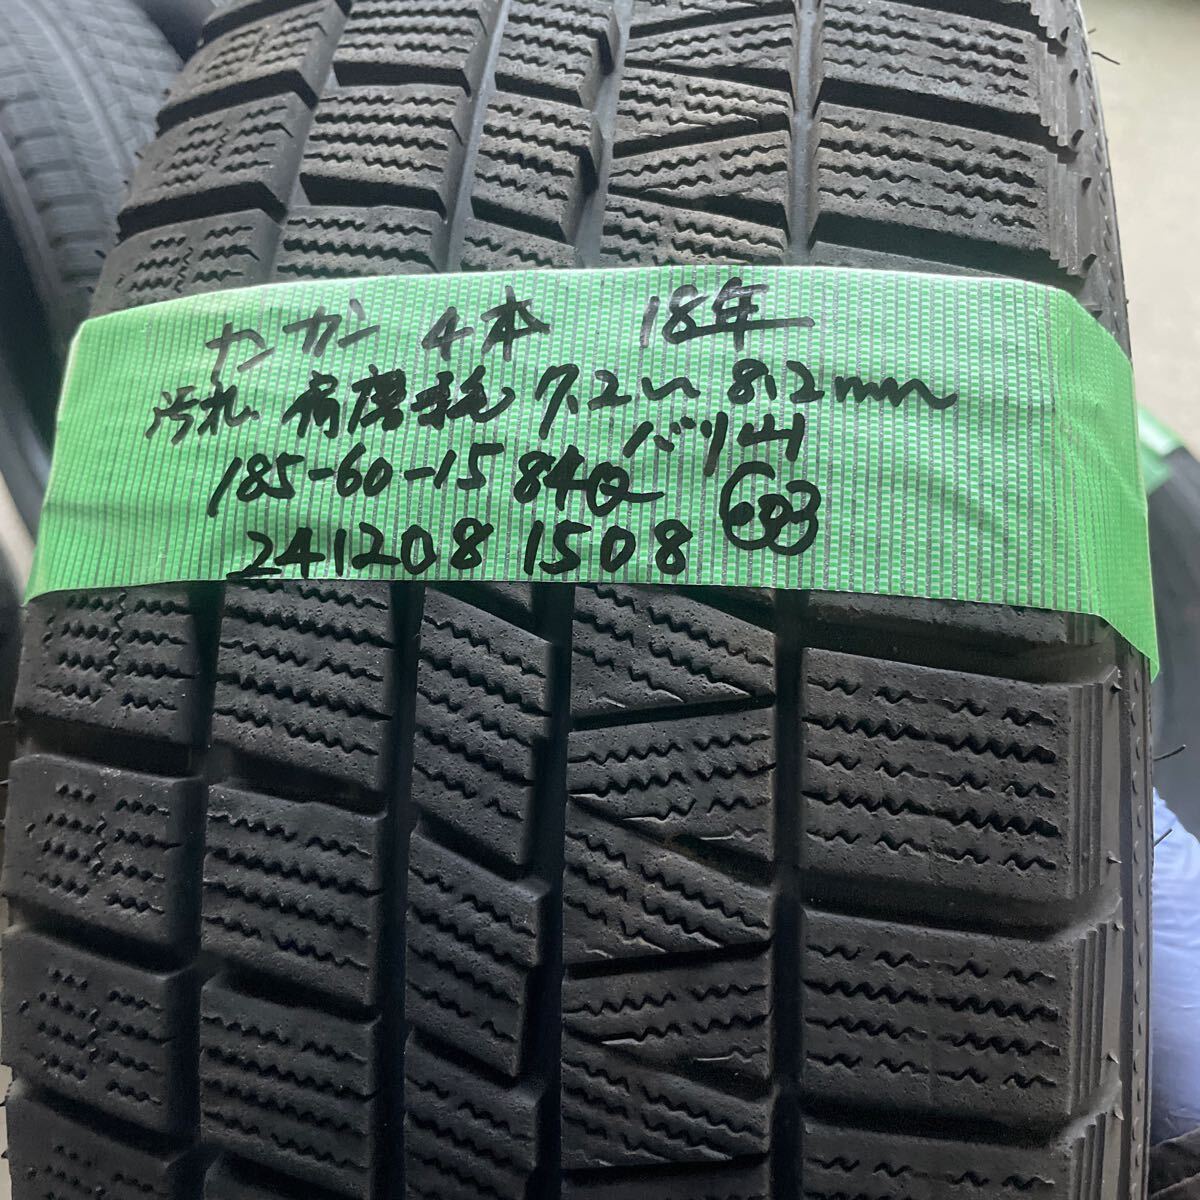 ナンカン 4本 18年
汚れ、有 摩耗 7.2〜8.2mm
バリ山
185-60-15 84Q
241208 1508